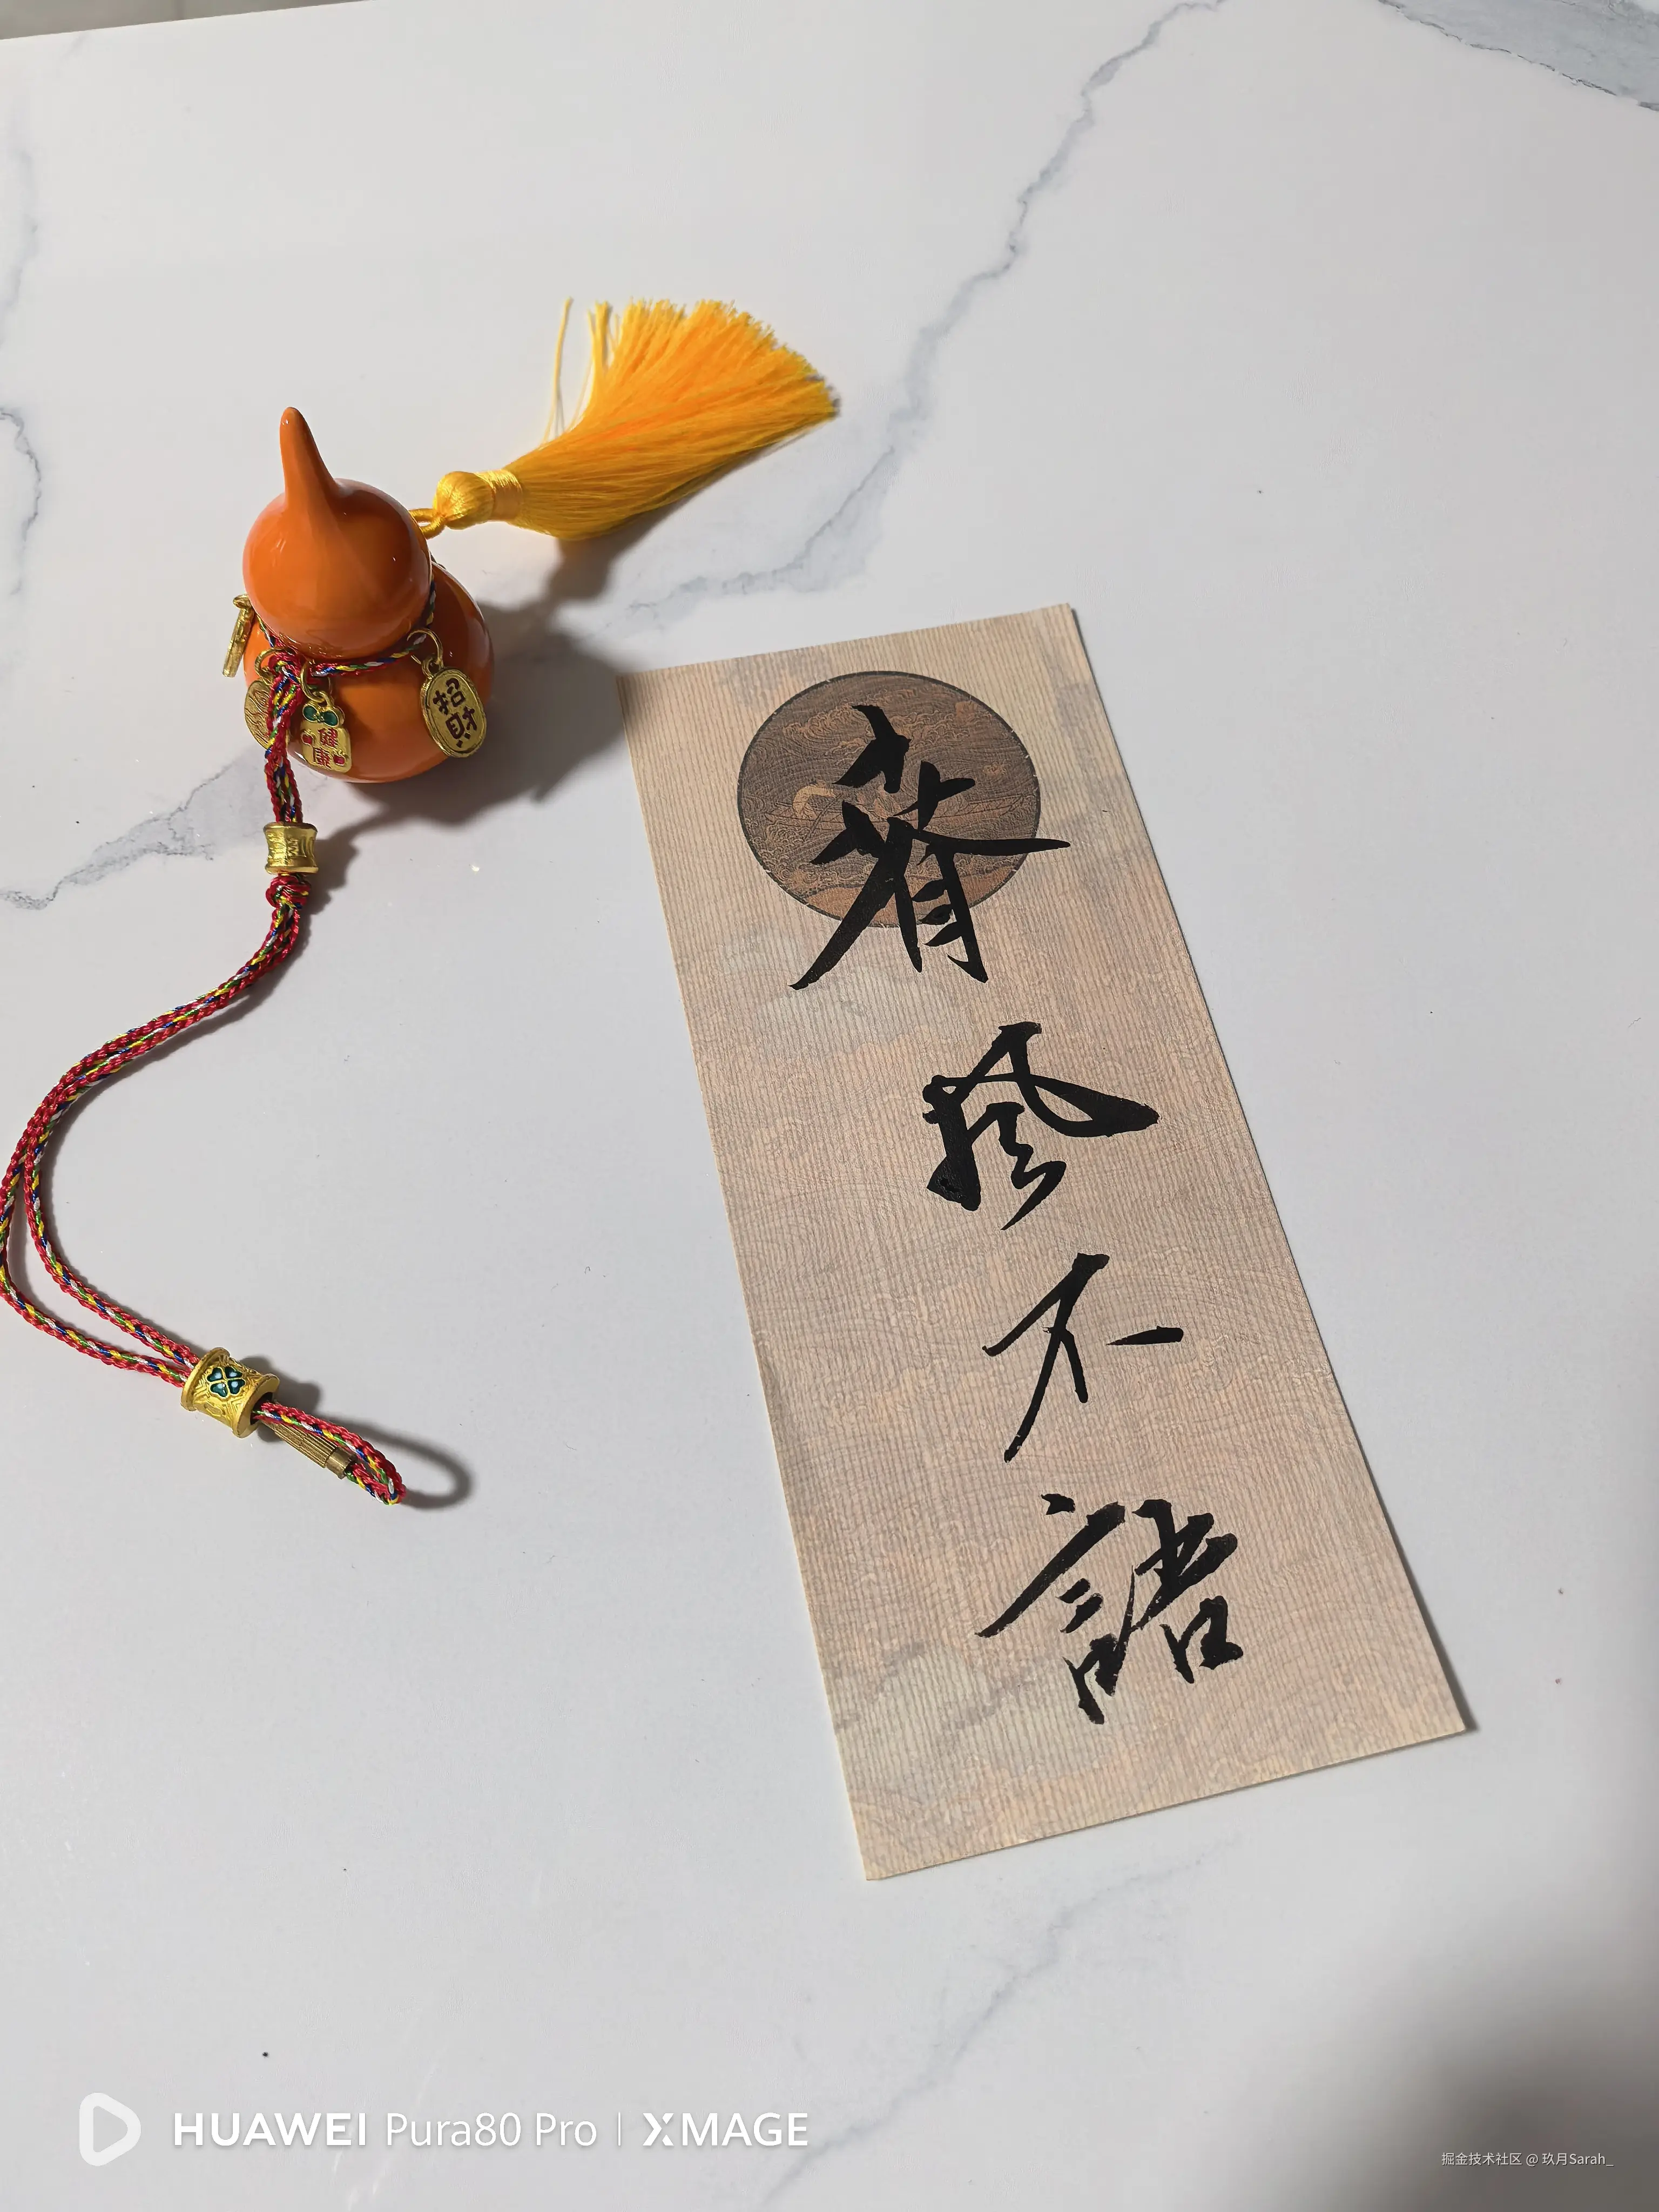 招財
健康
春
風
不
語
HUAWEI Pura80 Pro | XMAGE
掘金技术社区 @ 玖月Sarah_